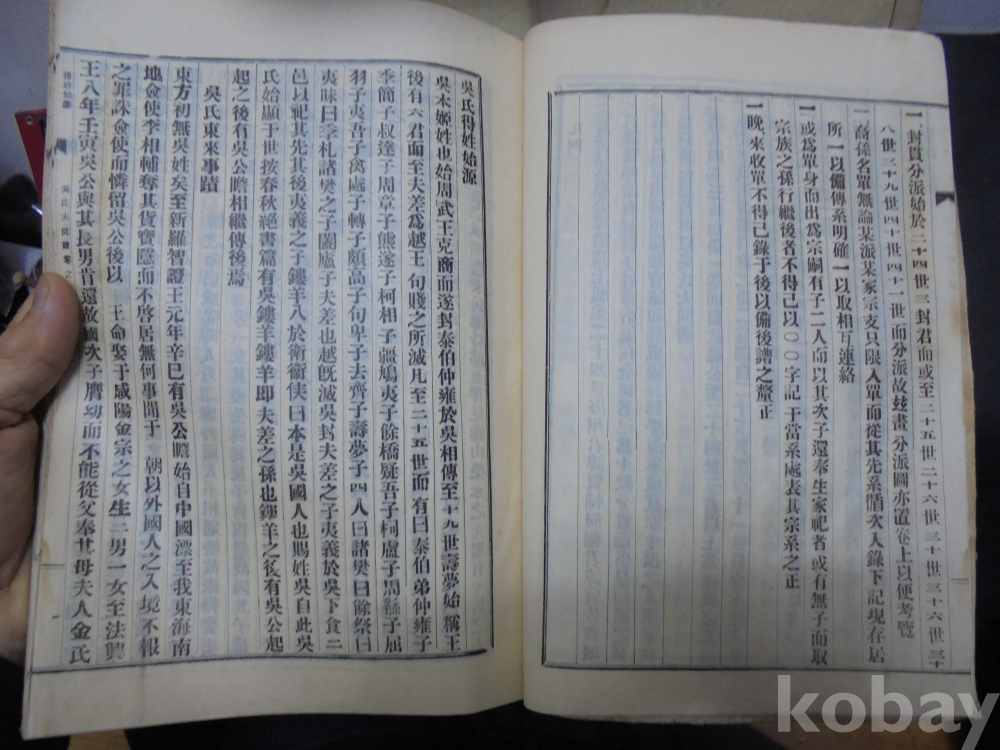 一封貫分派始於二十四世三封君而或至二十五世二十六世三十世三十六世三十
八世三十九世四十世四十一世而分派故玆畫分派圖亦置卷上以便考覽
一裔係名單無論某派某家宗支只限入單而從其先系循次入錄下記現存居
所一以備傳系明確一以取相互連絡
一或爲單身而出爲宗嗣有子二人而以其次子還奉生家祀者或有無子而取
宗族之孫行繼後者不得已以〇〇字記于當系處表其宗系之正
一晚來收單不得已錄于後以備後譜之釐正
吳氏得姓始源
吳本姬姓也始周武王克商而遂封泰伯仲雍於吳相傳至十九世壽夢始稱王
後有六君而至夫差爲越王句賤之所滅凡至二十五世而有曰泰伯弟仲雍子
季簡子叔達子周章子熊遂子柯相子彊鳩夷子餘橋疑吾子柯盧子周繇子屈
羽子夷吾子禽處子轉子頗高子句卑子去齊子壽夢子四人曰諸樊曰餘祭曰
夷昧曰季札諸樊之子闔廬子夫差也越旣滅吳封夫差之子夷義於吳下食二
邑以祀其先其後夷義之子鏤羊入於衛衛侯曰本是吳國人也賜姓吳自此吳
氏始顯于世按春秋絶書篇有吳鏤羊鏤羊即夫差之孫也鏤羊之後有吳公起
起之後有吳公瞻相繼傳後焉
吳氏東來事蹟
東方初無吳姓矣至新羅智證王元年辛巳有吳公瞻始自中國漂至我東海南
地僉使李相輔奪其貨寶隱而不啓居無何事聞于 朝以外國人之入境不報
之罪誅僉使而憐留吳公後以 王命娶于咸陽金宗之女生二男一女至法興
王八年壬寅吳公與其長男肯還故國次子膺幼而不能從父奉其母夫人金氏
得姓始源 吳氏大同譜 卷之
kobay